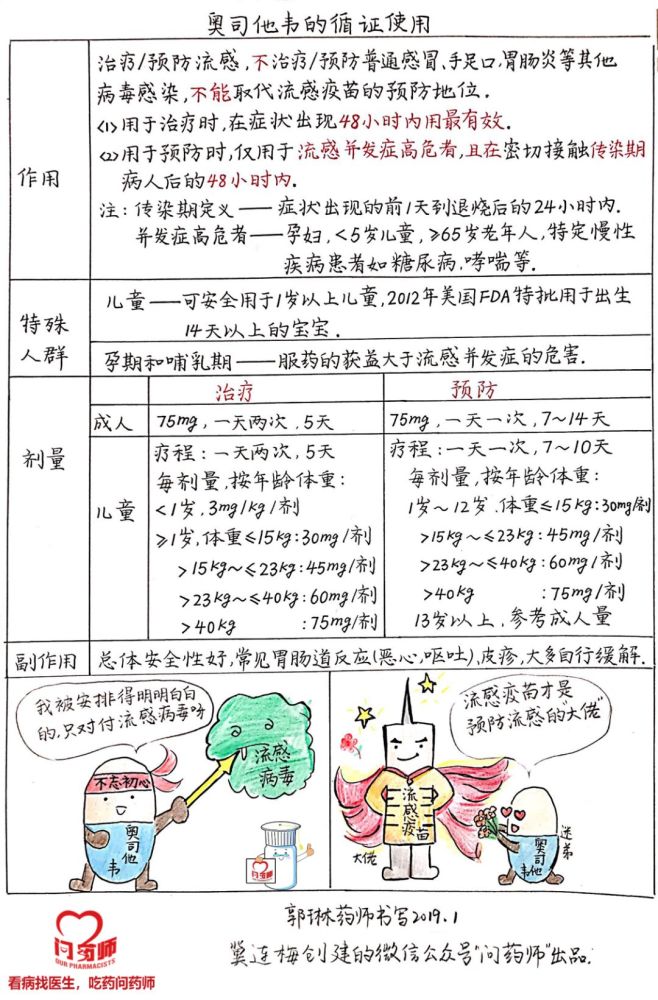 奥司他韦的循证使用
作用
治疗/预防流感,不治疗/预防普通感冒、手足口,胃肠炎等其他
病毒感染,不能取代流感疫苗的预防地位.
<1>用于治疗时,在症状出现48小时内用最有效.
<2>用于预防时,仅用于流感并发症高危者,且在密切接触传染期
病人后的48小时内.
注:传染期定义——症状出现的前1天到退烧后的24小时内.
并发症高危者——孕妇,<5岁儿童,≥65岁老年人,特定慢性
疾病患者如糖尿病,哮喘等.
特殊
人群
儿童——可安全用于1岁以上儿童,2012年美国FDA特批用于出生
14天以上的宝宝.
孕期和哺乳期——服药的获益大于流感并发症的危害.
剂量
治疗
预防
成人
75mg,一天两次,5天
75mg,一天一次,7~14天
儿童
疗程:一天两次,5天
每剂量,按年龄体重:
<1岁,3mg/kg/剂
≥1岁,体重≤15kg:30mg/剂
>15kg~≤23kg:45mg/剂
>23kg~≤40kg:60mg/剂
>40kg :75mg/剂
疗程:一天一次,7~10天
每剂量,按年龄体重:
1岁~12岁.体重≤15kg:30mg/剂
>15kg~≤23kg:45mg/剂
>23kg~≤40kg:60mg/剂
>40kg :75mg/剂
13岁以上,参考成人量
副作用
总体安全性好,常见胃肠道反应(恶心,呕吐),皮疹,大多自行缓解.
我被安排得明明白白
的,只对付流感病毒呀
流感
病毒
不忘初心
奥司他韦
问药师
流感疫苗才是
预防流感的"大佬"
流感疫苗
大佬
奥司他韦
迷弟
郭琳药师书写2019.1
冀连梅创建的微信公众号"问药师"出品.
问药师
OUR PHARMACISTS
看病找医生，吃药问药师